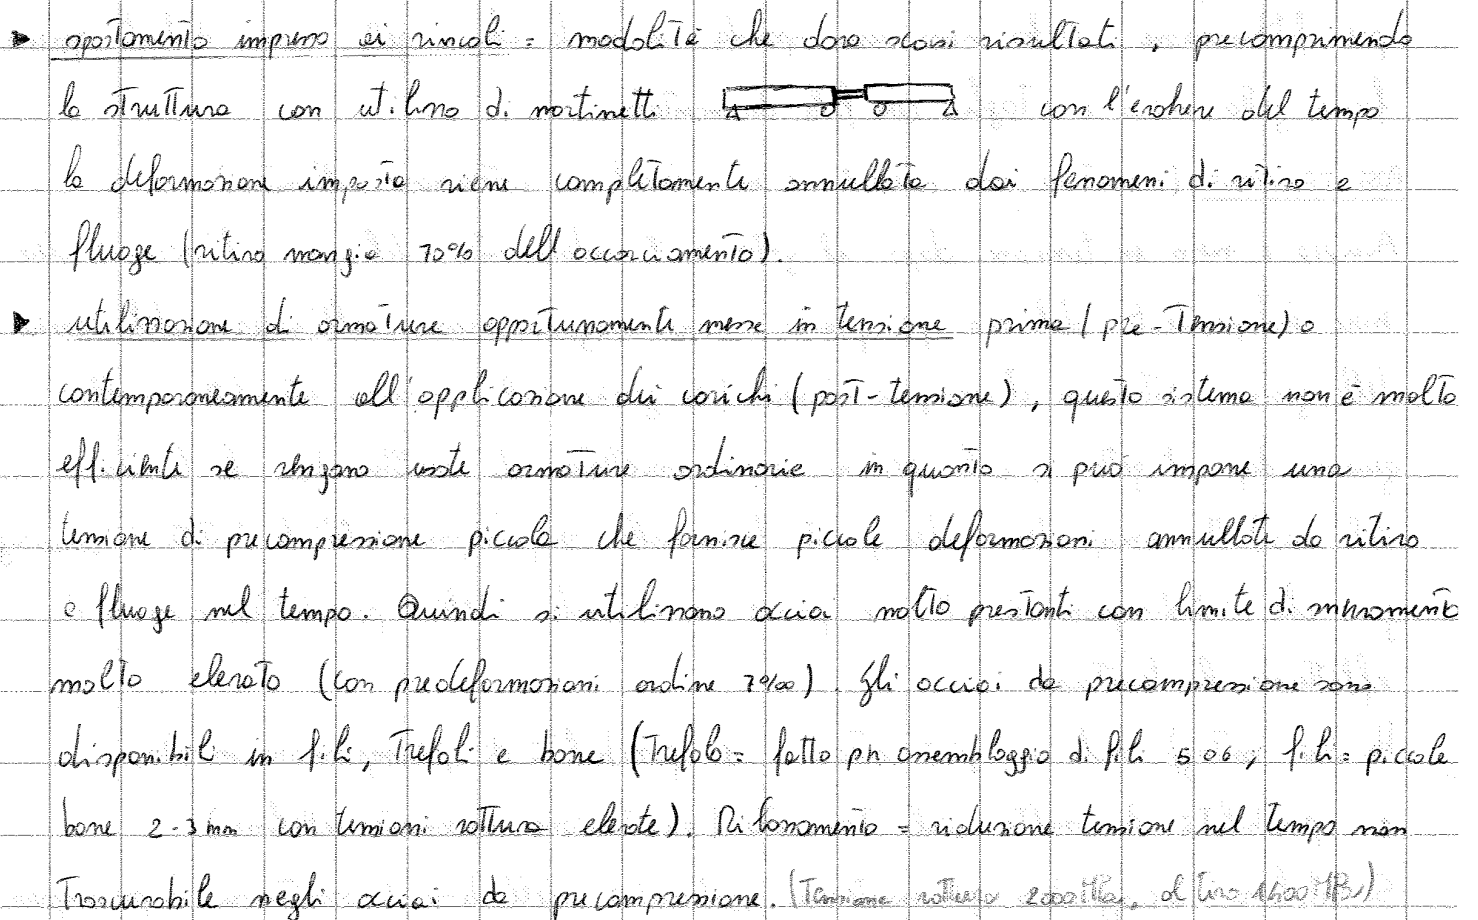 ▶ spostamento impresso ai vincoli = modalità che dava scarsi risultati, precomprimendo
la struttura con utilizzo di martinetti con l'evolvere del tempo
la deformazione imposta viene completamente annullata dai fenomeni di ritiro e
fluage (ritiro mangia 70% dell'accorciamento).
▶ utilizzazione di armature opportunamente messe in tensione prima (pre-tensione) o
contemporaneamente all'applicazione dei carichi (post-tensione), questo sistema non è molto
efficiente se vengono usate armature ordinarie in quanto si può imporre una
tensione di precompressione piccola che fornisce piccole deformazioni annullate da ritiro
e fluage nel tempo. Quindi si utilizzano acciai molto prestanti con limite di snervamento
molto elevato (con predeformazioni ordine 7‰). Gli acciai da precompressione sono
disponibili in fili, trefoli e barre (trefolo = fatto per assemblaggio di fili 5 o 6, fili = piccole
barre 2-3 mm con tensioni rottura elevate). Rilassamento = riduzione tensione nel tempo non
trascurabile negli acciai da precompressione. (Tensione rottura 2000 MPa, al tiro 1400 MPa)